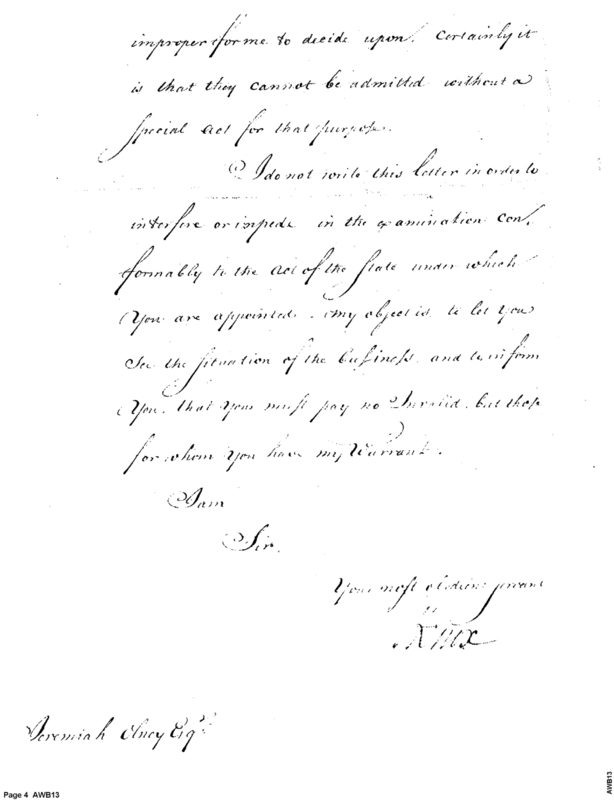 improper for me to decide upon. Certainly it
is that they cannot be admitted without a
special Act for that purpose.
I do not write this letter in order to
interfere or impede in the examination con,
formably to the Act of the State under which
You are appointed. My object is to let you
See the situation of the business and to inform
You, that you must pay no Invalid, but those
for whom you have my Warrant.
I am
Sir,
Your most obedient servant
Jeremiah Olney Esqr
Page 4 AWB13
AWB13